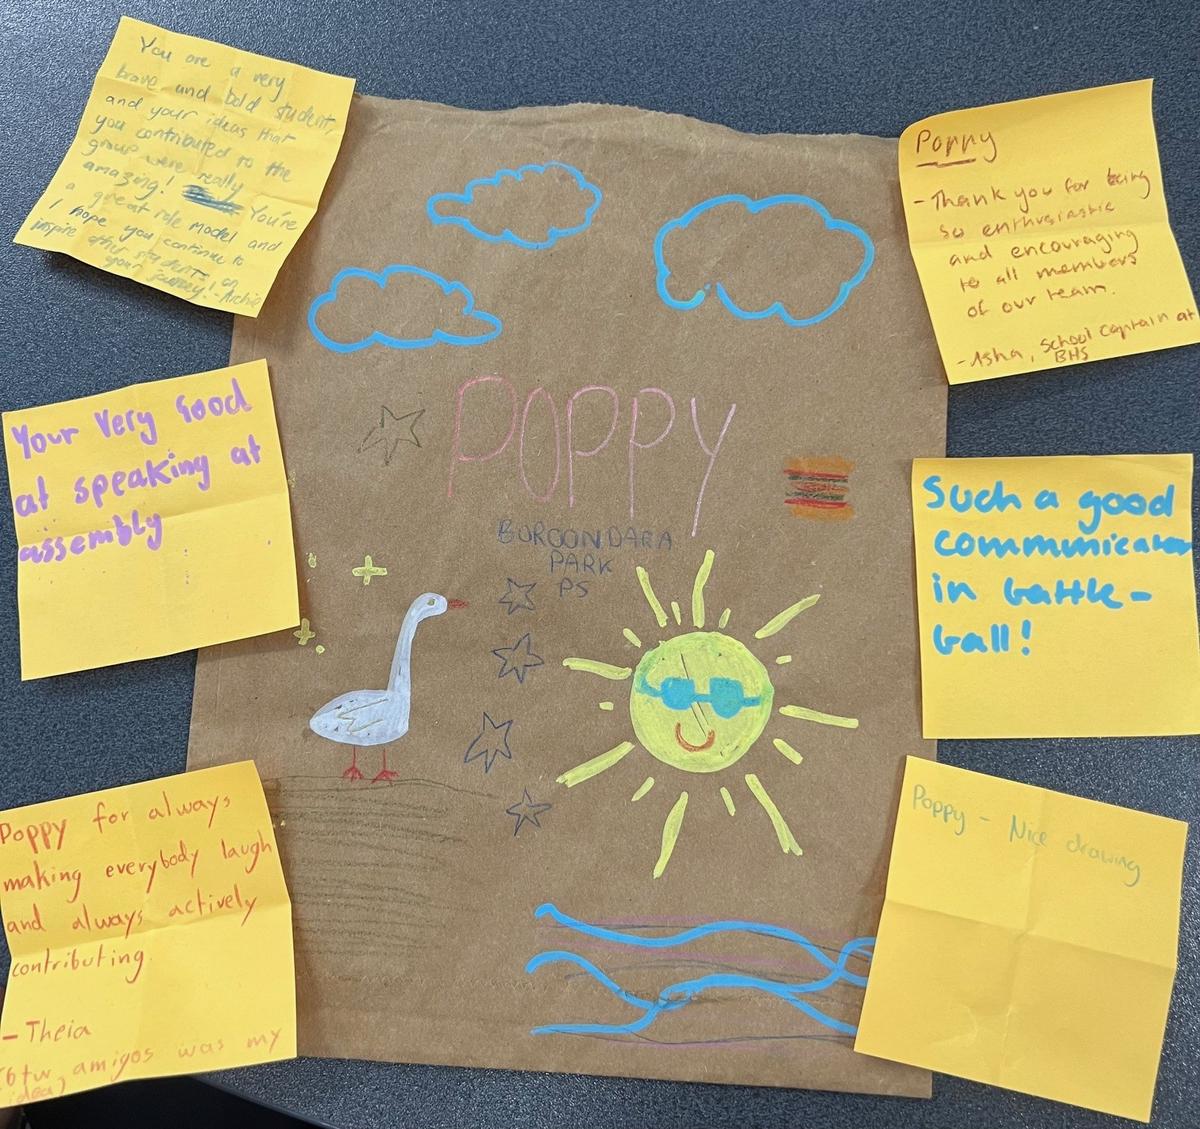 You are a very
brave and bold student,
and your ideas that
you contributed to the
group were really
amazing! You're
a great role model and
I hope you continue to
inspire other students on
your journey! - Archie
Your very Good
at speaking at
assembly
Poppy for always
making everybody laugh
and always actively
contributing.
- Theia
(btw amigos was my
idea)
POPPY
BOROONDARA
PARK
PS
Poppy
- Thank you for being
so enthusiastic
and encouraging
to all members
of our team.
- Asha, School Captain at
BHS
Such a good
communicator
in battle-
ball!
Poppy - Nice drawing